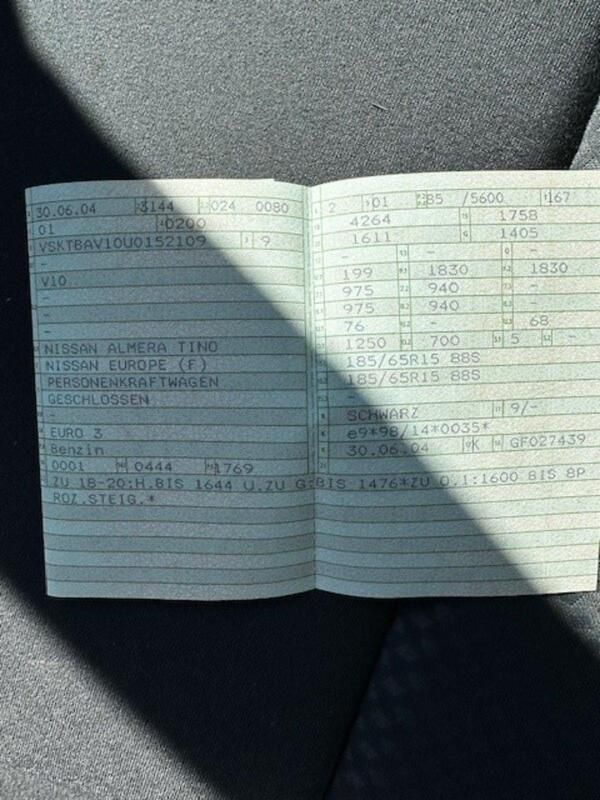 30.06.04 3144 024 0080
01 0200
VSKTBAV10U0152109 9
-
V10
-
-
-
NISSAN ALMERA TINO
NISSAN EUROPE (F)
PERSONENKRAFTWAGEN
GESCHLOSSEN
-
EURO 3
Benzin
0001 0444 1769
2 01 85 /5600 167
4264 1758
1611 1405
- -
199 1830 1830
975 940 -
975 940 -
76 - 68
1250 700 5 -
185/65R15 88S
185/65R15 88S
-
SCHWARZ 9/-
e9*98/14*0035*
30.06.04 K GF027439
ZU 18-20:H.BIS 1644 U.ZU G:BIS 1476*ZU O.1:1600 BIS 8P
ROZ.STEIG.*